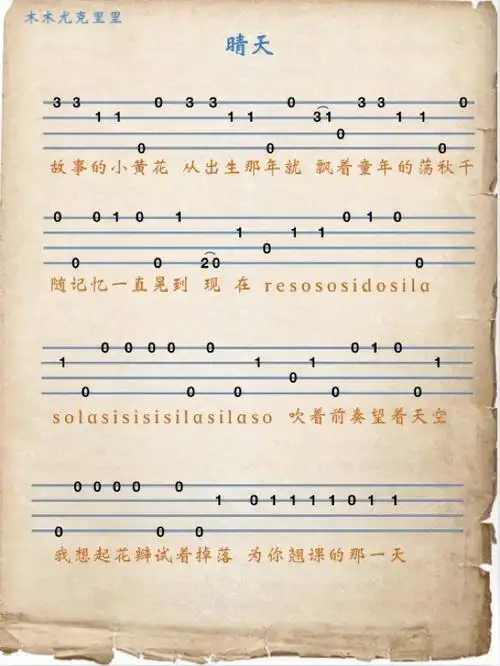 木木尤克里里
晴天
3 3 1 1 0 0 3 3 1 1 0 0 31 0 3 3 1 1 0 0
故事的小黄花 从出生那年就 飘着童年的荡秋千
0 0 0 1 0 0 1 20 1 0 1 1 0 1 0 0
随记忆一直晃到 现 在 resososidosila
1 0 0 0 0 0 0 0 0 1 0 1 0 0 1 0 0 1
solasisisisilasilaso 吹着前奏望着天空
0 0 0 0 0 0 0 0 1 0 1 1 1 1 0 1 1
我想起花瓣试着掉落 为你翘课的那一天